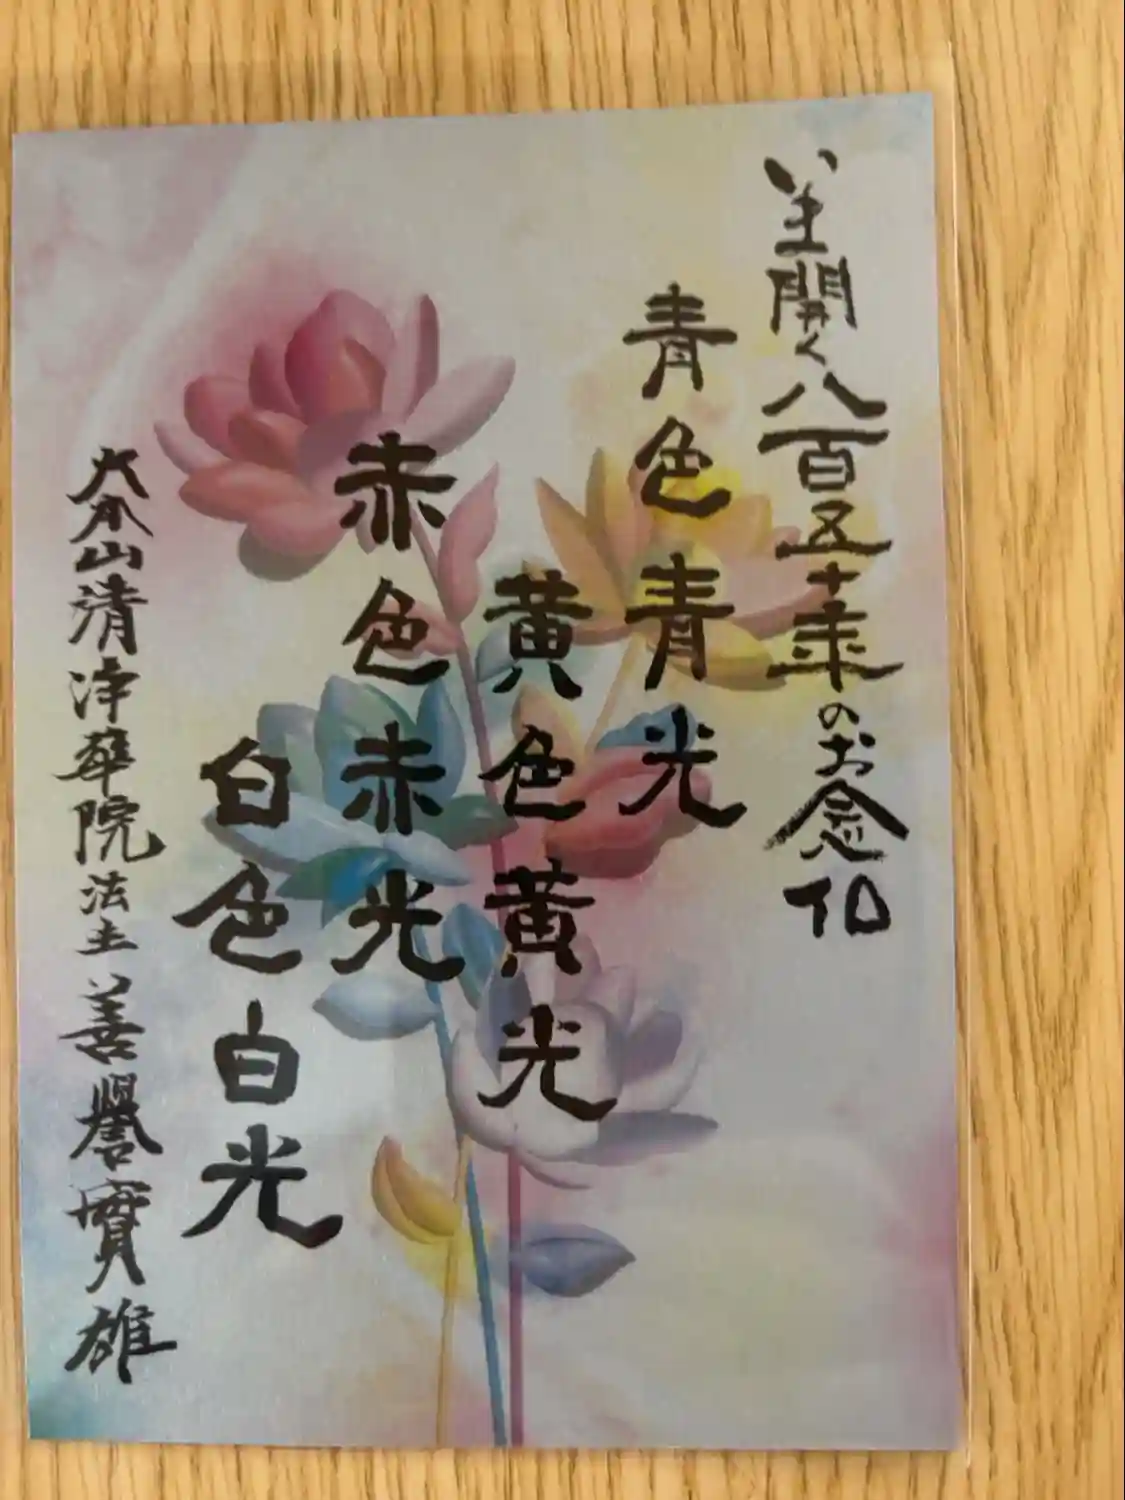 いま開く八百五十年のお念仏
青色青光
黄色黄光
赤色赤光
白色白光
大本山清浄華院法主善譽寳雄